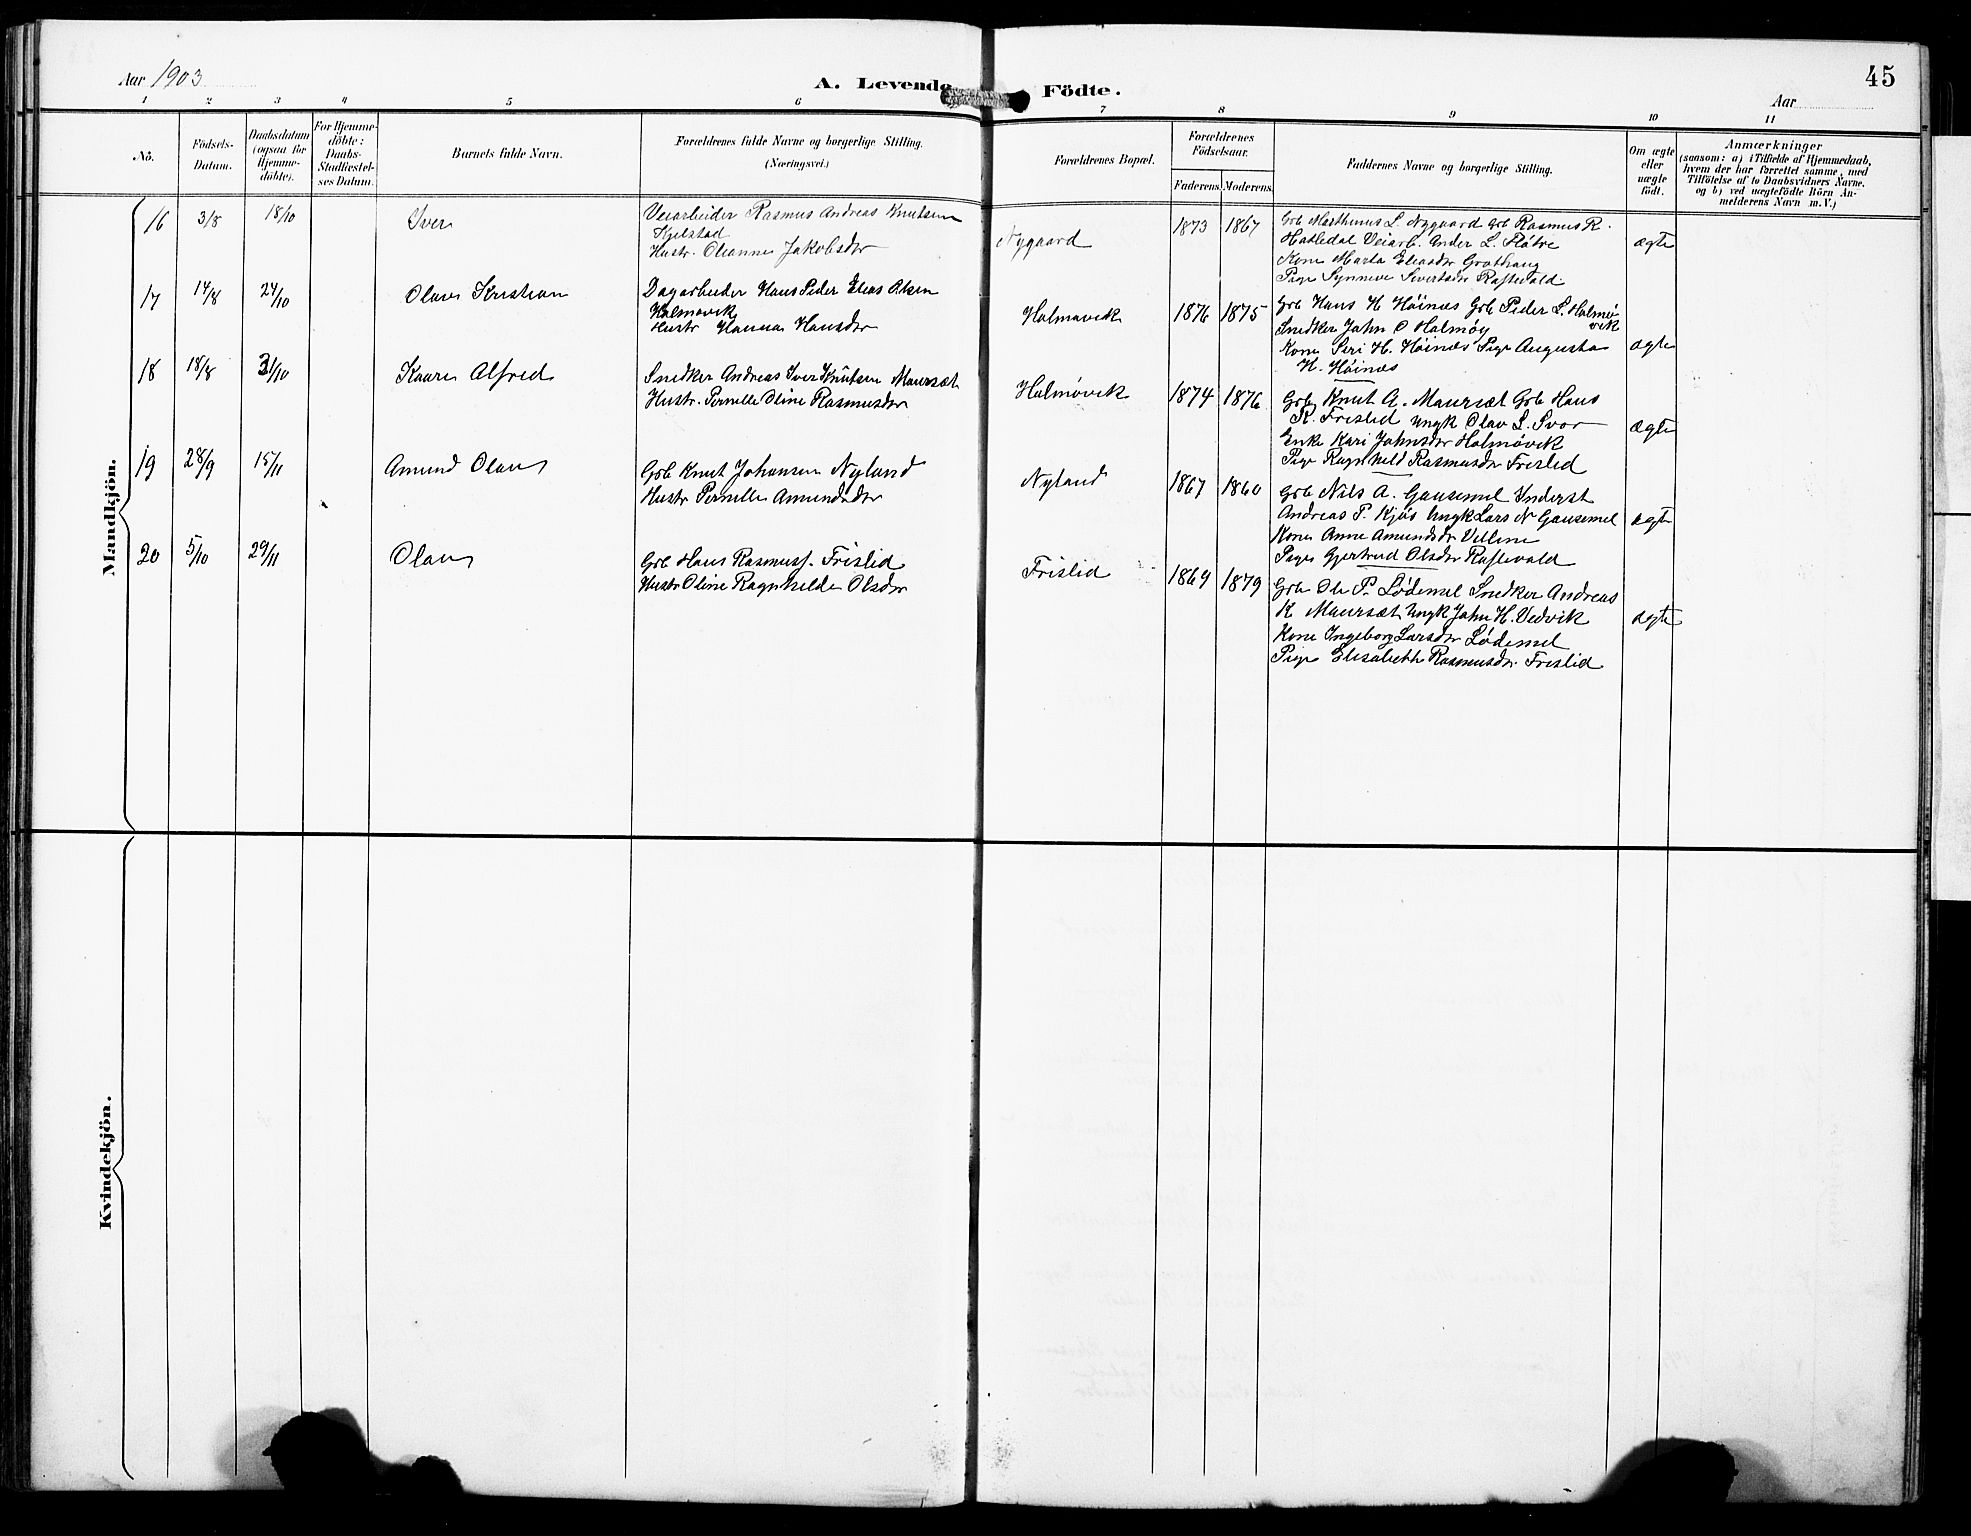 Aar 1903
A. Levende Födte.
45
Aar
1 2 3 4 5 6 7 8 9 10 11
No.
Födsels-
Datum.
Daabsdatum
(ogsaa for
Hjemme-
döbte).
For Hjemme-
döbte:
Daabs-
Stadfæstel-
ses Datum.
Barnets fulde Navn.
Forældrenes fulde Navne og borgerlige Stilling.
(Næringsvei.)
Forældrenes Bopæl.
Forældrenes
Födselsaar.
Faderens. Moderens.
Faddernes Navne og borgerlige Stilling.
Om ægte
eller
uægte
født.
Anmærkninger
(saasom: a) i Tilfælde af Hjemmedaab,
hvem der har forrettet samme, med
Tilföielse af to Daabsvidners Navne,
og b) ved uægtefödte Börn An-
melderens Navn m. V.)
Mandkjön.
16 3/8 18/10 Iver
Veiarbeider Rasmus Andreas Knutsen
Kjelstad
Hustr. Oleanne Jakobsdr
Nygaard 1873 1867
Grb Marthinus L. Nygaard Grb Rasmus R.
Hatledal Veiarb. Ander L. Fløtre
Kone Marta Eliasdr Grothaug
Pige Synneve Sivertsdr Raftevold
ægte
17 14/8 24/10 Olav Kristian
Dagarbeider Hans Peder Elias Olsen
Holmøvik
Hustr Hanna Hansdr
Holmøvik 1876 1875
Grb Hans H Höinæs Grb Peder L. Holmö-
vik
Snedker John O Holmøy
Kone Seri H. Höinæs Pige Augusta
H. Höinæs
ægte
18 18/8 31/10 Kaare Alfred
Snedker Andreas Iver Knutsen Maursæt
Hustr. Pernille Oline Rasmusdr
Holmøvik 1874 1876
Grb Knut A. Maursæt Grb Hans
R. Frislid Ungk Olav L. Svor
Enke Kari Johnsdr Holmøvik
Pige Ragnhild Rasmusdr Frislid
ægte
19 28/9 15/11 Amund Olav
Grb Knut Johansen Nyland
Hustr Pernille Amundsdr
Nyland 1867 1860
Grb Nils A. Gausemel Inderst
Andreas P. Kjøs Ungk Lars N Gausemel
Kone Anne Amundsdr
Pige Gjertrud Olsdr Raftevold
ægte
20 5/10 29/11 Olav
Grb Hans Rasmuss. Frislid
Hustr Oline Ragnhilde Olsdr
Frislid 1869 1879
Grb Ole P. Lødemel Snedker Andreas
K Maursæt Ungk John H. Vedvik
Kone Ingeborg Larsdr Lødemel
Pige Elisabeth Rasmusdr. Frislid
ægte
Kvindekjön.